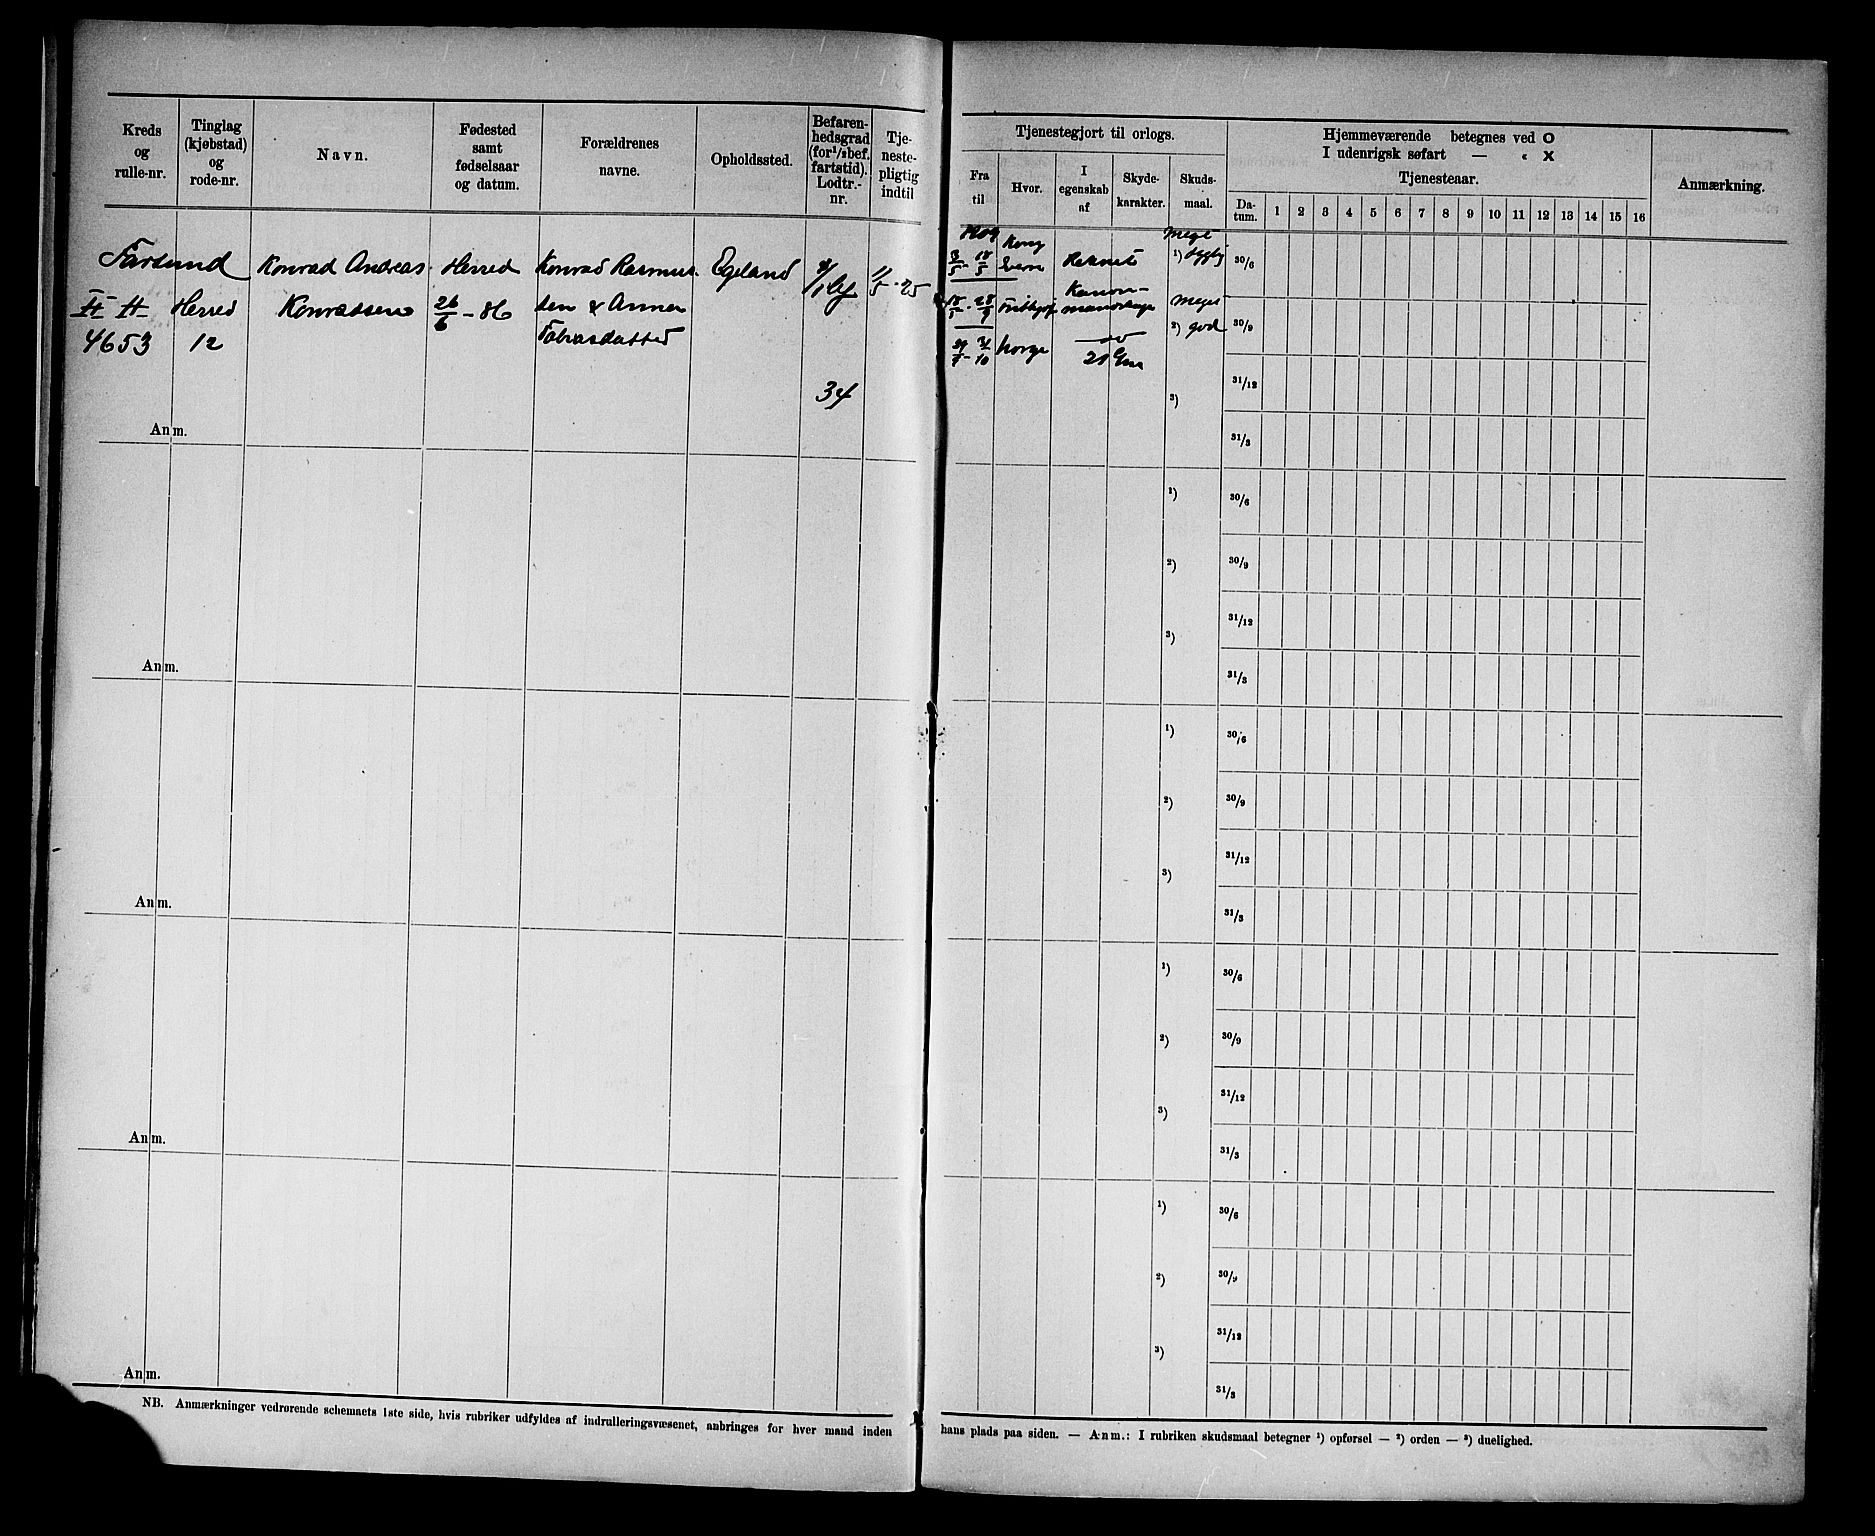 Kreds og rulle-nr.
Tinglag (kjøbstad) og rode-nr.
Navn.
Fødested samt fødselsaar og datum.
Forældrenes navne.
Opholdssted.
Befaren-hedsgrad (for 1/3 bef. fartstid). Lodtr.-nr.
Tje-neste-pligtig indtil
Tjenestegjort til orlogs.
Fra til
Hvor.
I egenskab af
Skyde-karakter.
Skuds-maal.
Hjemmeværende betegnes ved O
I udenrigsk søfart — « X
Tjenesteaar.
Da-tum. 1 2 3 4 5 6 7 8 9 10 11 12 13 14 15 16
Anmærkning.
Farsund
4653
Herred
12
Konrad Andreas
Konradsen
Herred
26/6 - 86
Konrad Rasmus-
sen & Anna
Tobiasdatter
Egeland
34
1/5 - 25
1909
3/5 - 18/5
Rekrut
Meget
1) dygtig
Kanon-
Norge
Meget
2) god
3)
30/6
30/9
31/12
31/3
Anm.
1)
2)
3)
30/6
30/9
31/12
31/3
Anm.
1)
2)
3)
30/6
30/9
31/12
31/3
Anm.
1)
2)
3)
30/6
30/9
31/12
31/3
Anm.
1)
2)
3)
30/6
30/9
31/12
31/3
Anm.
NB. Anmærkninger vedrørende schemaets 1ste side, hvis rubriker udfyldes af indrulleringsvæsenet, anbringes for hver mand inden
hans plads paa siden. — Anm.: I rubriken skudsmaal betegner 1) opførsel — 2) orden — 3) duelighed.